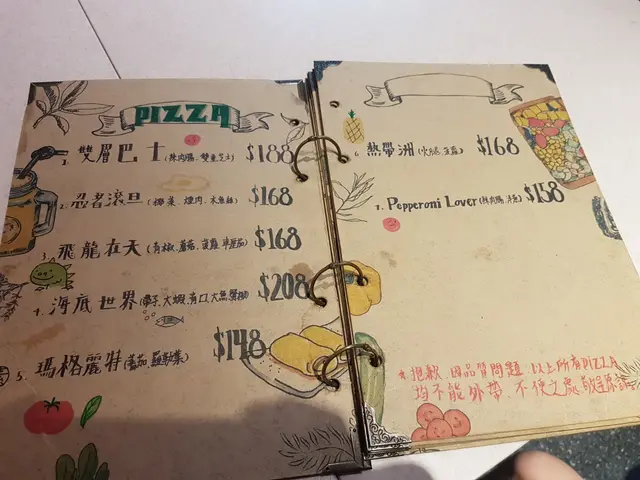 PIZZA
1. 雙層巴士 (辣肉腸、雙重芝士) $188
2. 忍者滾旦 (椰菜、煙肉、木魚絲) $168
3. 飛龍在天 (青椒、蘑菇、菠蘿、車厘茄) $168
4. 海底世界 (帶子、大蝦、 $208
5. 瑪格麗特 (蕃茄、羅勒葉) $148
6. 熱帶洲 (火腿、菠蘿) $168
7. Pepperoni Lover (辣肉腸、 $158
* 抱歉、因品質問題、以上所有PIZZA
均不能外帶、不便之處、敬請